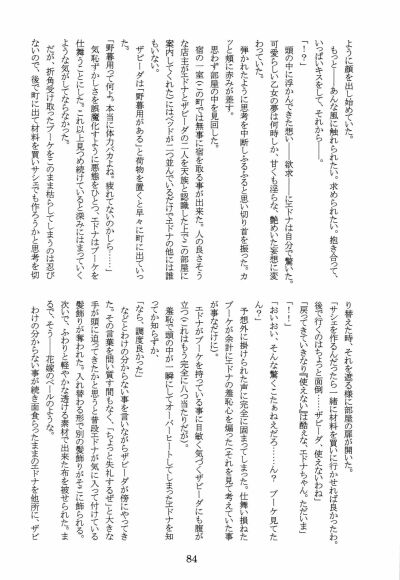 ように顔を出し始めていた。
もっと――あんな風に触れられたい。求められたい。抱き合って、
いっぱいキスをして、それから――。
「！？」
頭の中に浮かんできた想い――欲求――にエドナは自分で驚いた。
可愛らしい乙女の夢は何時しか、甘くも淫らな、艶めいた妄想に変
わっていた。
弾かれたように思考を中断しふるふると思い切り首を振った。カ
ッと頬に赤みが差す。
思わず部屋の中を見回した。
宿の一室（この町では無事に宿を取る事が出来た。人の良さそう
な店主がエドナとザビーダの二人を天族と認識した上でこの部屋に
案内してくれた）にはベッドが二つ並んでいるだけでエドナの他には誰
もいない。
ザビーダは「野暮用がある」と荷物を置くと早々に町に出ていっ
た。
「野暮用って何よ。本当に体力バカよね。疲れてないのかしら……」
気恥ずかしさを誤魔化すように悪態をひとつ、エドナはブーケを
仕舞うことにした。これ以上見つめ続けていると深みにはまっていく
ような気がしてならなかった。
だが、折角受け取ったブーケをこのまま枯らしてしまうのは忍び
ないので、後で町に出て材料を買いサシェでも作ろうかと思考を切
り替えた時、それを遮る様に部屋の扉が開いた。
「サシェを作るんだったら一緒に材料を買いに行かせれば良かったわ。
後で行くのはちょっと面倒……ザビーダ、使えないわね」
「戻ってきていきなり『使えない』は酷ぇな、エドナちゃん。ただいま」
「！！」
「おいおい、そんな驚くこたぁねえだろ……ん？　ブーケ見てた
ん？」
予想外に掛けられた声に完全に固まってしまった。仕舞い損ねた
ブーケが余計にエドナの羞恥心を煽った（それを見て考えていた事
が事なだけに）。
エドナがブーケを持っている事に目敏く気づくザビーダにも腹が
立つ（これはもう完全に八つ当たりだが）。
羞恥で頭の中が一瞬にしてオーバーヒートしてしまったエドナを知
ってか知らずか、
「なら、調度良かった」
などとわけの分からない事を言いながらザビーダが傍にやってき
た。その言葉を問い質す間もなく、「ちょっと失礼するぜ」と大きな
手が頭に迫ってきたかと思うと普段エドナが気に入って付けている
髪飾りが奪われた。入れ替わる形で別の髪飾りがそこに飾られる。
次いで、ふわりと軽やかな透ける素材で出来た布を被せられた。ま
るで、そう――花嫁のベールのような。
わけの分からない事が続き面食らったままのエドナを他所に、ザビ
84